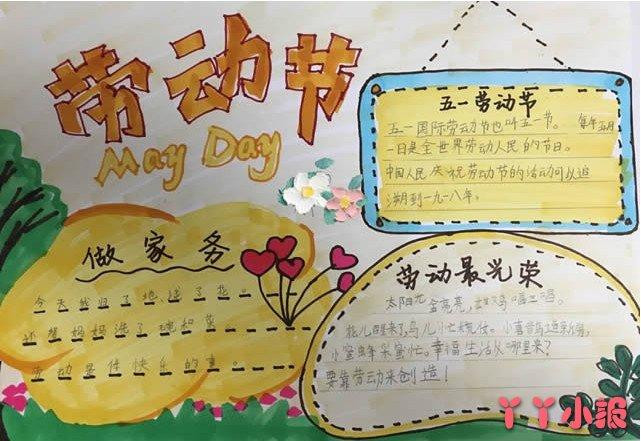 劳动节
May Day
五一劳动节
五一国际劳动节也叫五一节。每年五月
一日是全世界劳动人民的节日。
中国人民庆祝劳动节的活动可以追
溯到一九一八年。
做家务
今天我扫了地、浇了花。
还帮妈妈洗了碗和菜。
劳动是件快乐的事。
劳动最光荣
太阳光金亮亮,雄鸡唱三唱。
花儿醒来了,鸟儿忙梳妆。小喜鹊造新房,
小蜜蜂采蜜忙。幸福生活从哪里来?
要靠劳动来创造!
丫丫小报